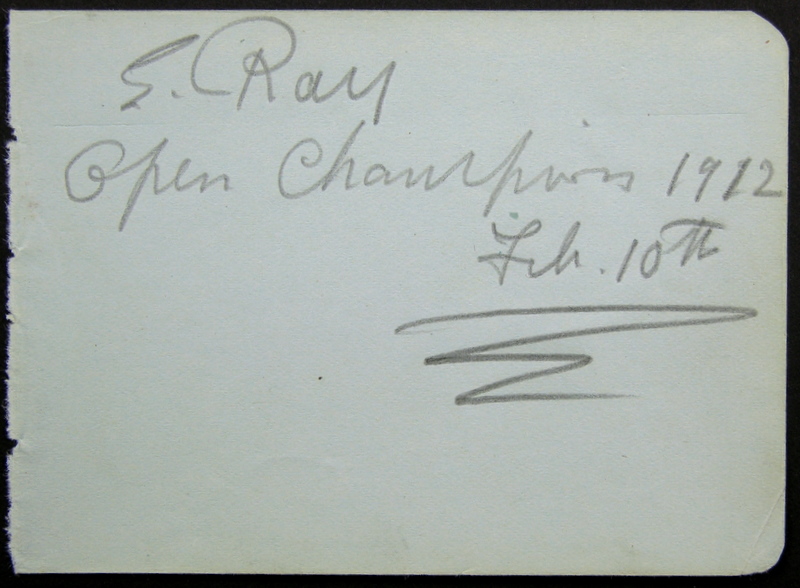 E. Ray
Open Champion 1912
Feb. 10th